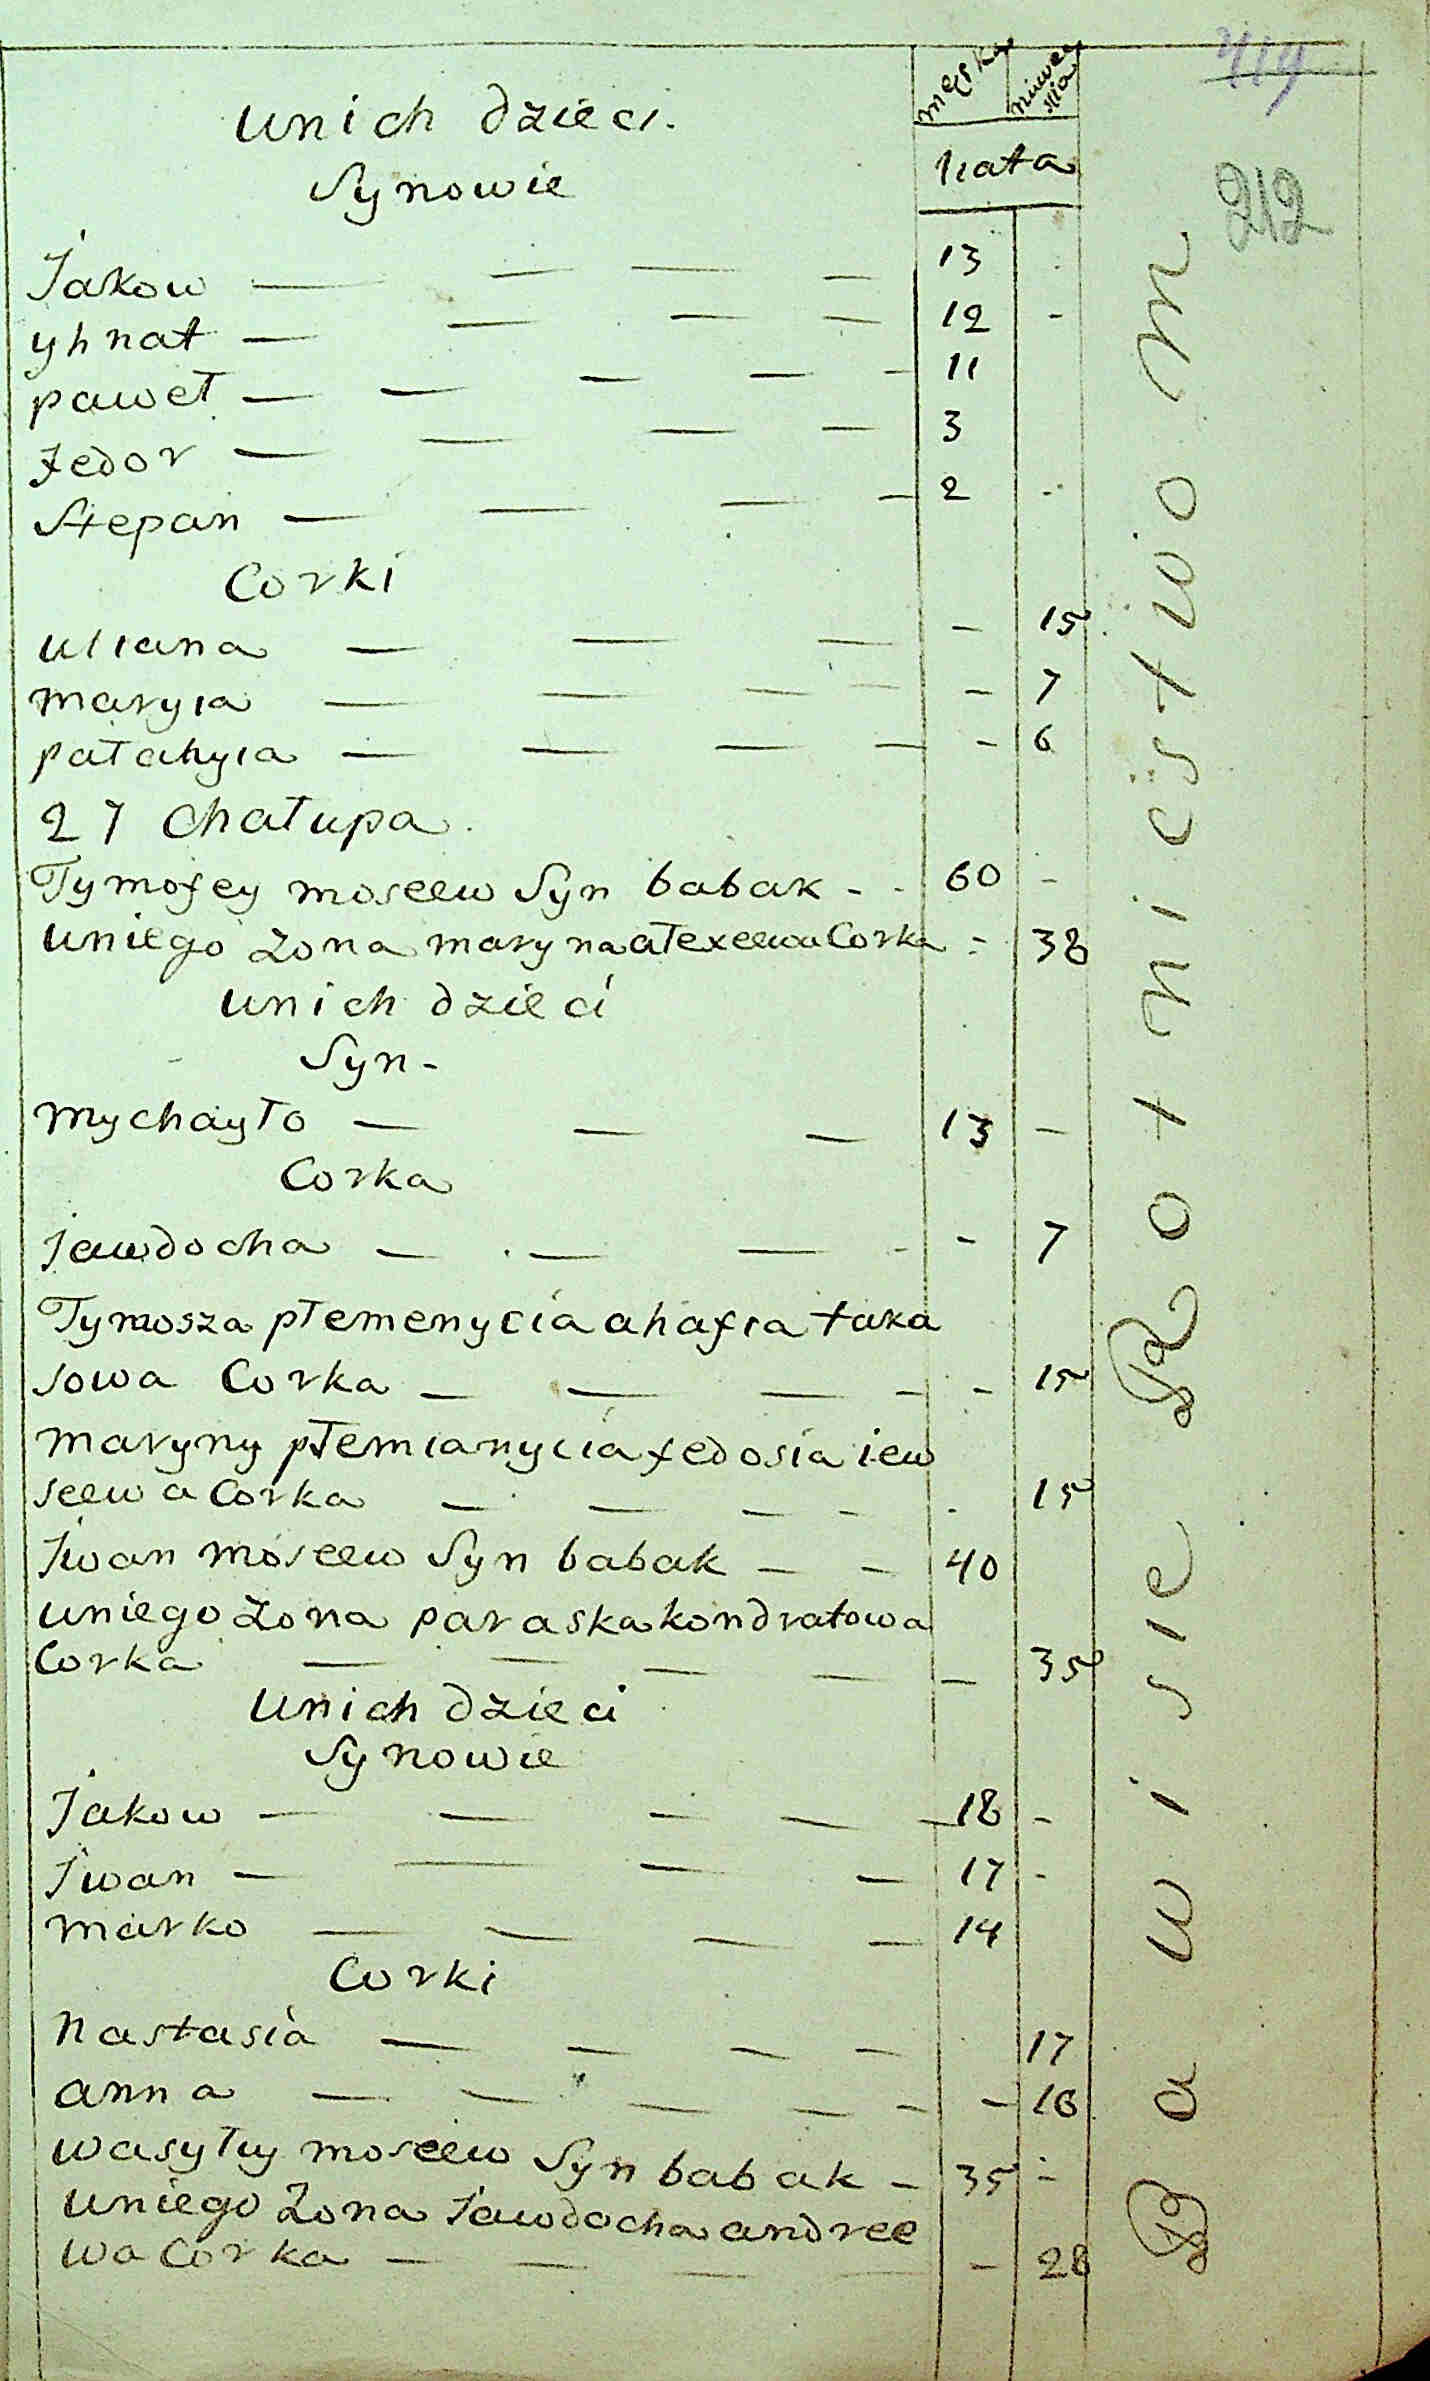 męska niewieścia
419
lata
212
unich dzieci.
Synowie
Jakow — — — — 13
yhnat — — — — 12 -
paweł — — — — - 11
fedor — — — — 3
Stepan — — — — 2 -
Corki
uliana — — — - 15
maryia — — — — - 7
pałahyia — — — — - 6
27 Chałupa
Tymofey moseew Syn babak - - 60 -
uniego żona maryna ałexeewa Corka - 38
unich dzieci
Syn -
mychayło — — — 13 -
Corka
jewdocha — — — - - 7
Tymosza płemenycia ahafia tara
sowa Corka — — — - - 15
maryny płemianycia fedosia iew
seewa Corka — — — - 15
Jwan moseew Syn babak — - 40
uniego żona paraska kondratowa
Corka — — — — — 35
unich dzieci
Synowie
Jakow — — — — — 18 -
Jwan — — — — 17 -
marko — — — — 14
Corki
nastasia — — — — 17
anna — — — — — - 16
wasyły moseew Syn babak - 35 -
uniego żona Jewdocha andree
wa Corka — — — — - 28
Bawi sie Rotnicistwom